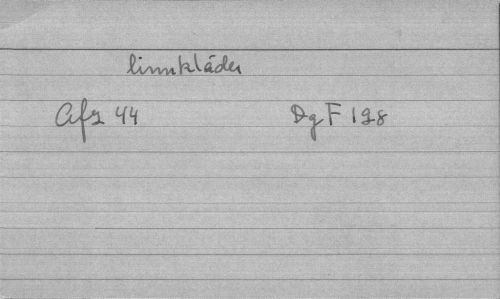 linnkläder
Afz 44 DgF 198